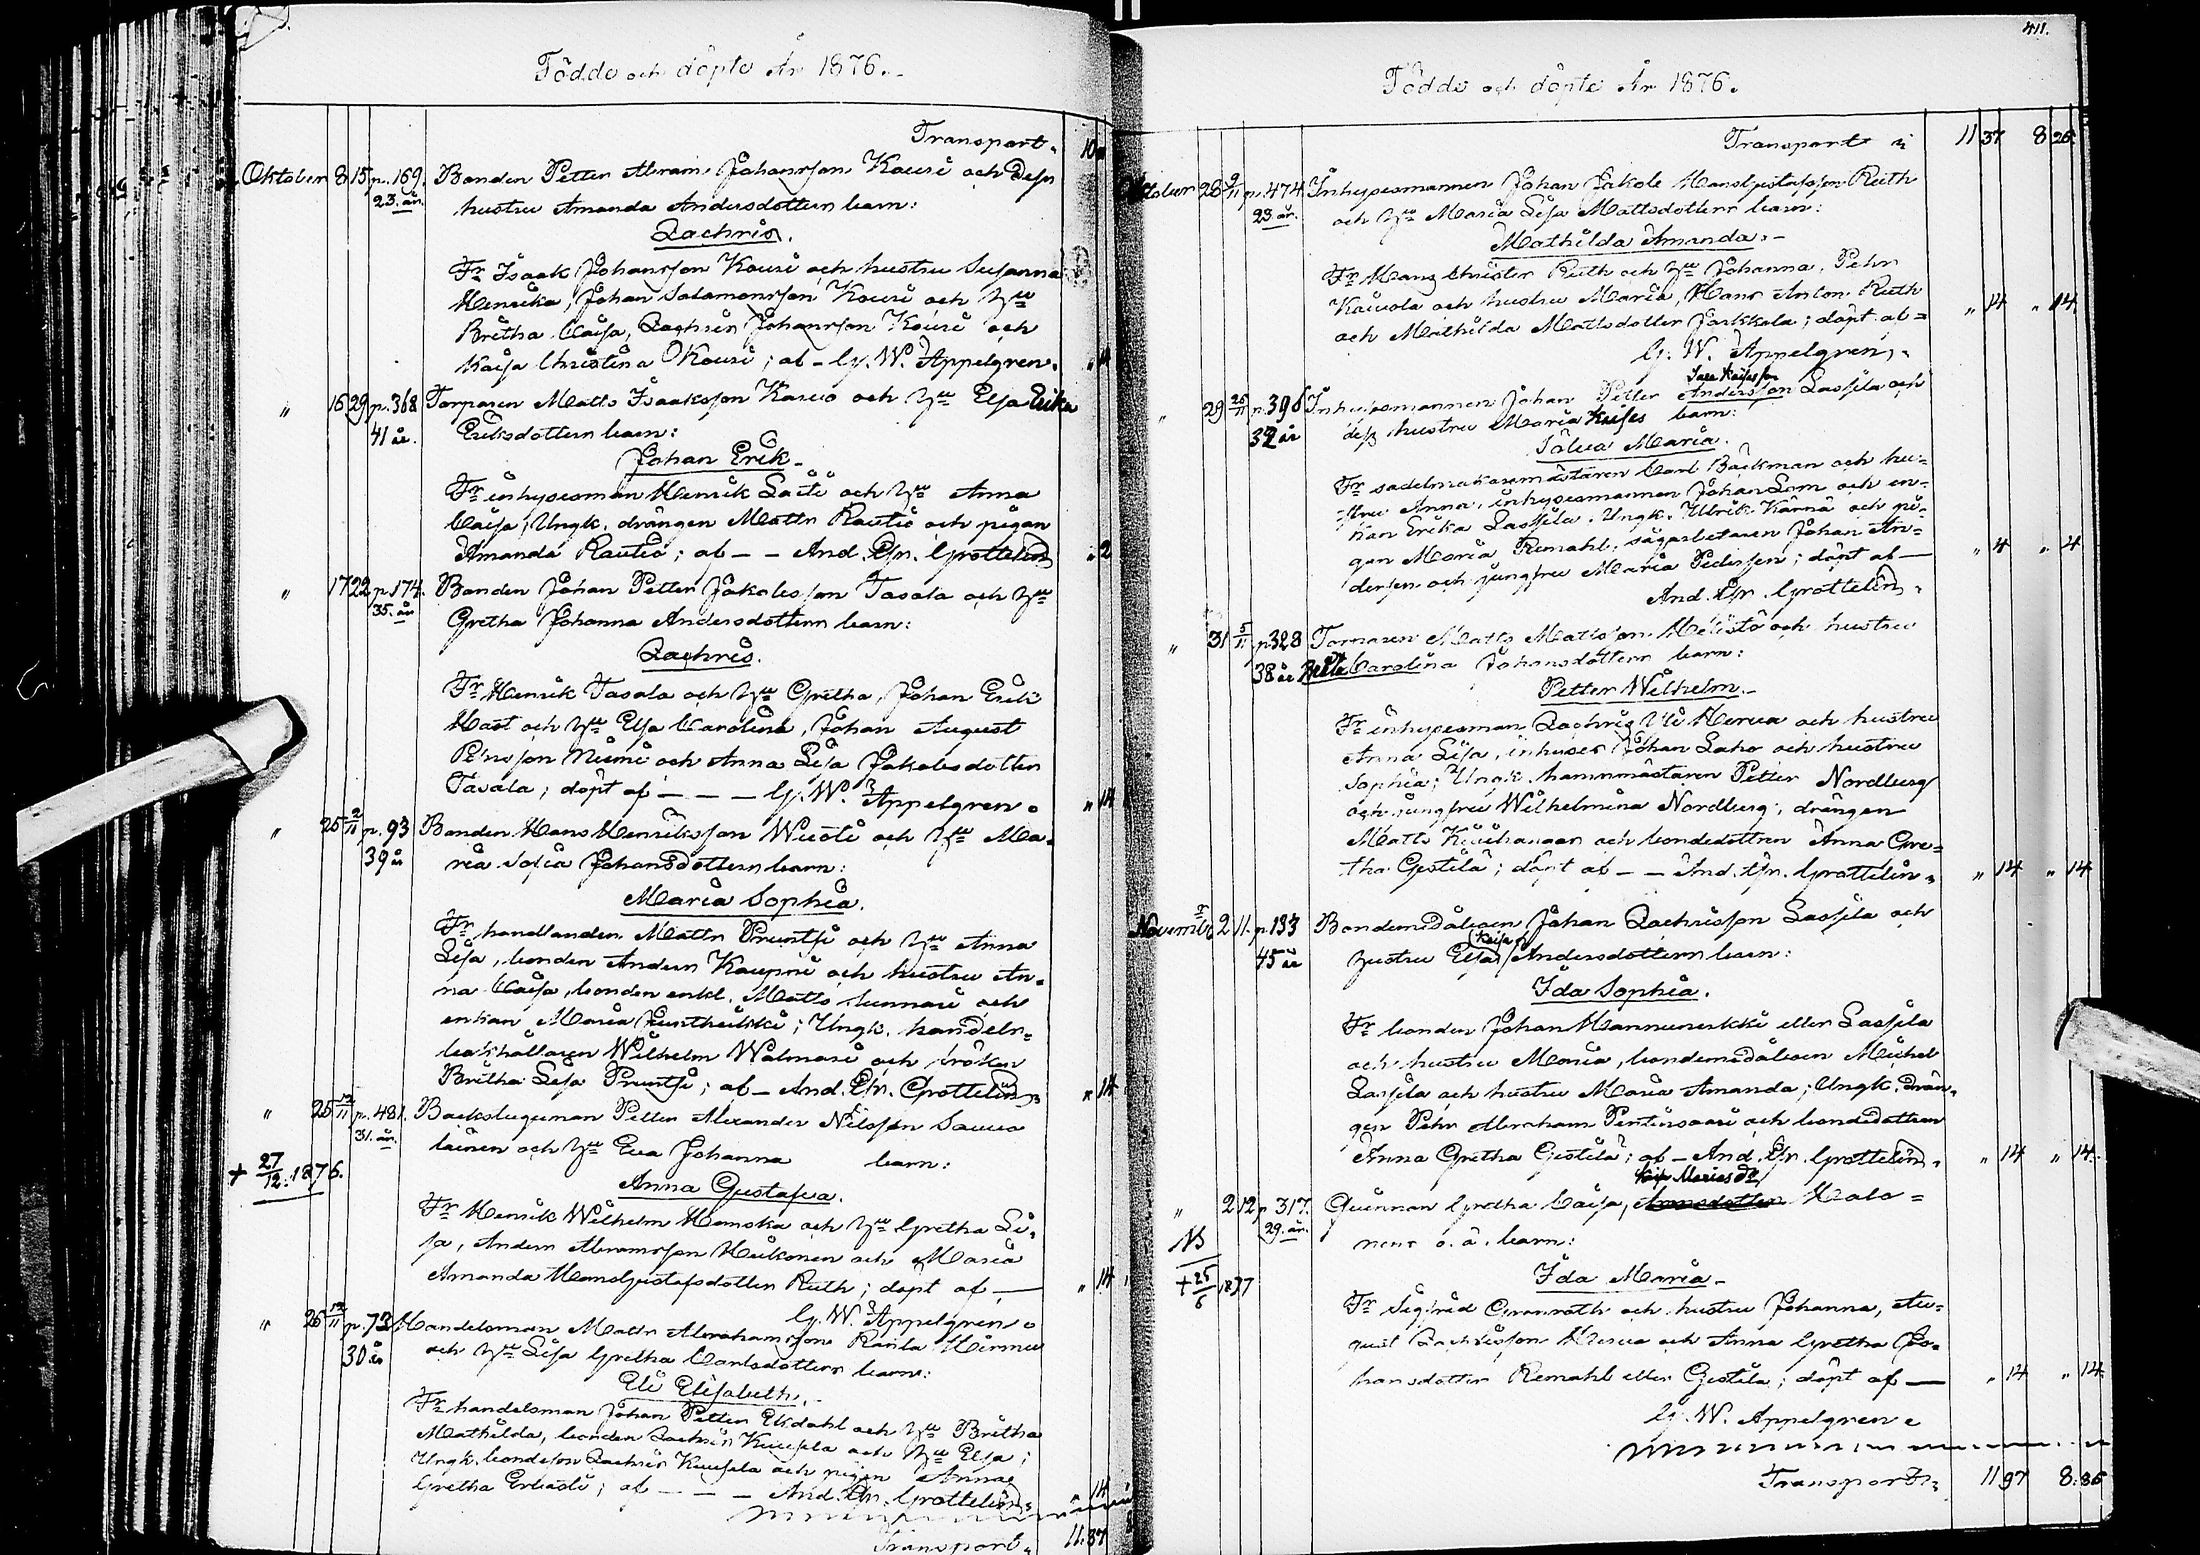 Födde och döpte År 1876.
Transport.
Oktober 8 15 p. 169. Bonden Petter Abram Johansson Kousi och dess
23. år. hustru Amanda Andersdotters barn:
Zachris.
Fr Isaak Johansson Kousi och hustru Susanna
Henrika, Johan Salomonsson Kousi och
Britha Caisa, Zachris Johansson Kousi och
Kaisa Christina Kousi; af - G. W. Appelgren.
" 16 29 p. 368 Torparen Matts Isaaksson och Elsa Erika
41 år. Eriksdotters barn:
Johan Erik
Fr inhysesman Henrik och Anna
Caisa; Ungk. drängen Matts Rautio och pigan
Amanda Rautio; af - - And. Grottelin " 2
" 17 22 p 174. Bonden Johan Petter Jakobsson Tasala och
35. år Gretha Johanna Andersdotters barn:
Zachris.
Fr Henrik Tasala och Gretha, Johan Erik
och Elsa Carolina, Johan August
Pehrsson Niemi och Anna Lisa Jakobsdotter
Tasala; döpt af - - - G. W. Appelgren. " 14
" 25 2/11 p. 93 Bonden Hans Henriksson och Ma-
39 år ria Sofia Johansdotters barn:
Maria Sophia.
Fr handlanden Matts och Anna
Lisa, bonden Anders Kauppi och hustru An-
na Caisa, bonden enkl. Matts och
enkan Maria; Ungk. handels-
bokhållaren Wilhelm Walmari och fröken
Britha Lisa; af - And. Grottelin " 14
" 25 12/11 p. 481. Backstuguman Petter Alexander Nilsson
31. år. och Eva Johanna barn:
+ 27/12. 1876.
Anna Gustafva.
Fr Henrik Wilhelm och Gretha Li-
sa, Anders Abramsson Heikonen och Maria
Amanda Hansgustafsdotter Ruth; döpt af - " 14
G. W. Appelgren.
" 26 12/11 p. 73 Handelsman Matts Abrahamsson
30 år och Lisa Gretha Carlsdotters barn:
Eli Elisabeth.
Fr handelsman Johan Petter Ekdahl och Britha
Mathilda, bonden Zachris Kuusela och Elsa;
Ungk. bondeson Zachris Kuusela och pigan Anna
Gretha; af - - - And. Grottelin " 14
Transport. 11.37
411.
Födde och döpte År 1876.
Transport 11 37 8 26
28 9/11 p. 474 Inhysesmannen Johan Jakob Hansgustafsson Ruth
23 år. och Maria Lisa Mattsdotters barn:
Mathilda Amanda.
Fr Hans Christer Ruth och Johanna, Pehr
och hustru Maria, Hans Anton Ruth
och Mathilda Mattsdotter Jaakkola; döpt af " 14 " 14
G. W. Appelgren.
" 29 26/11 p. 396 Inhysesmannen Johan Petter Andersson Lassila och
39 år dess hustru Maria barn:
Maria.
Fr sadelmakaremästaren Carl Bäckman och hu-
stru Anna, inhysesmannen Johan och en-
kan Erika Lassila. Ungk. Ulrik Kärnä och pi-
gan Maria Remahl, sågarbetaren Johan An-
dersen och jungfru Maria Pedersen; döpt af - " 4 " 4
And. Grottelin.
" 31 5/11 p 328 Torparen Matts Mattsson och hustru
38 år Brita Carolina Johansdotters barn:
Petter Wilhelm.
Fr inhysesman Zachris och hustru
Anna Lisa, inhyses Johan och hustru
Sophia; Ungk. hamnmästaren Petter Nordberg
och jungfru Wilhelmina Nordberg, drängen
Matts och bondedottren Anna Gre-
tha Gestilä; döpt af - - And. Grottelin. " 14 " 14
November 2 11. p. 133 Bondemedåboen Johan Zachrisson Lassila och
45 år hustru Elsa (Kaisa) Andersdotters barn:
Ida Sophia.
Fr bonden Johan eller Lassila
och hustru Maria, bondemedåboen Michel
Lassila och hustru Maria Amanda; Ungk. drän-
gen Pehr Abraham och bondedottren
Anna Gretha Gestilä; af - And. Grottelin. " 14 " 14
" 2 12 p. 317. Qvinnan Gretha Caisa
29. år. o. ä. barn:
NB
+ 25/6 1877
Ida Maria
Fr Sigfrid och hustru Johanna, Au-
gust Zachrisson och Anna Gretha Jo-
hansdotter Remahl eller Gestilä; döpt af - " 14 " 14
G. W. Appelgren
Transport. 11 97 8.86